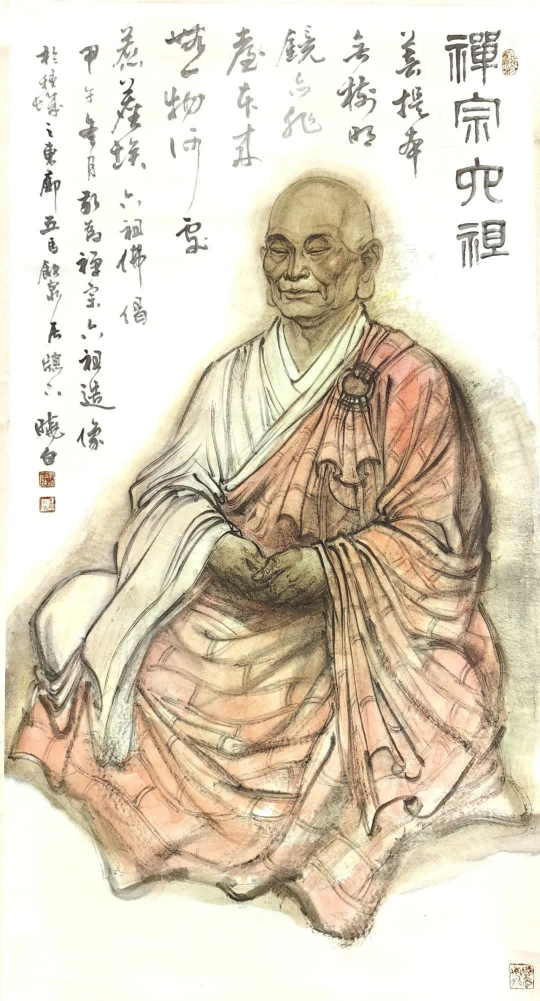 禪宗六祖
菩提本
無樹明
鏡亦非
臺本來
無一物何處
惹塵埃 六祖佛偈
甲午冬月敬為禪宗六祖造像
於穗城之東廊 居牖下 曉白